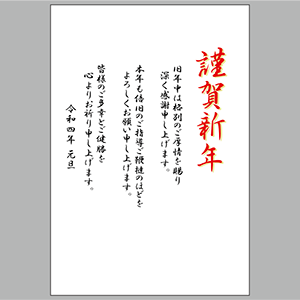 謹賀新年
旧年中は格別のご厚情を賜り
深く感謝申し上げます。
本年も倍旧のご指導ご鞭撻のほどを
よろしくお願い申し上げます。
皆様のご多幸とご健勝を
心よりお祈り申し上げます。
令和四年 元旦